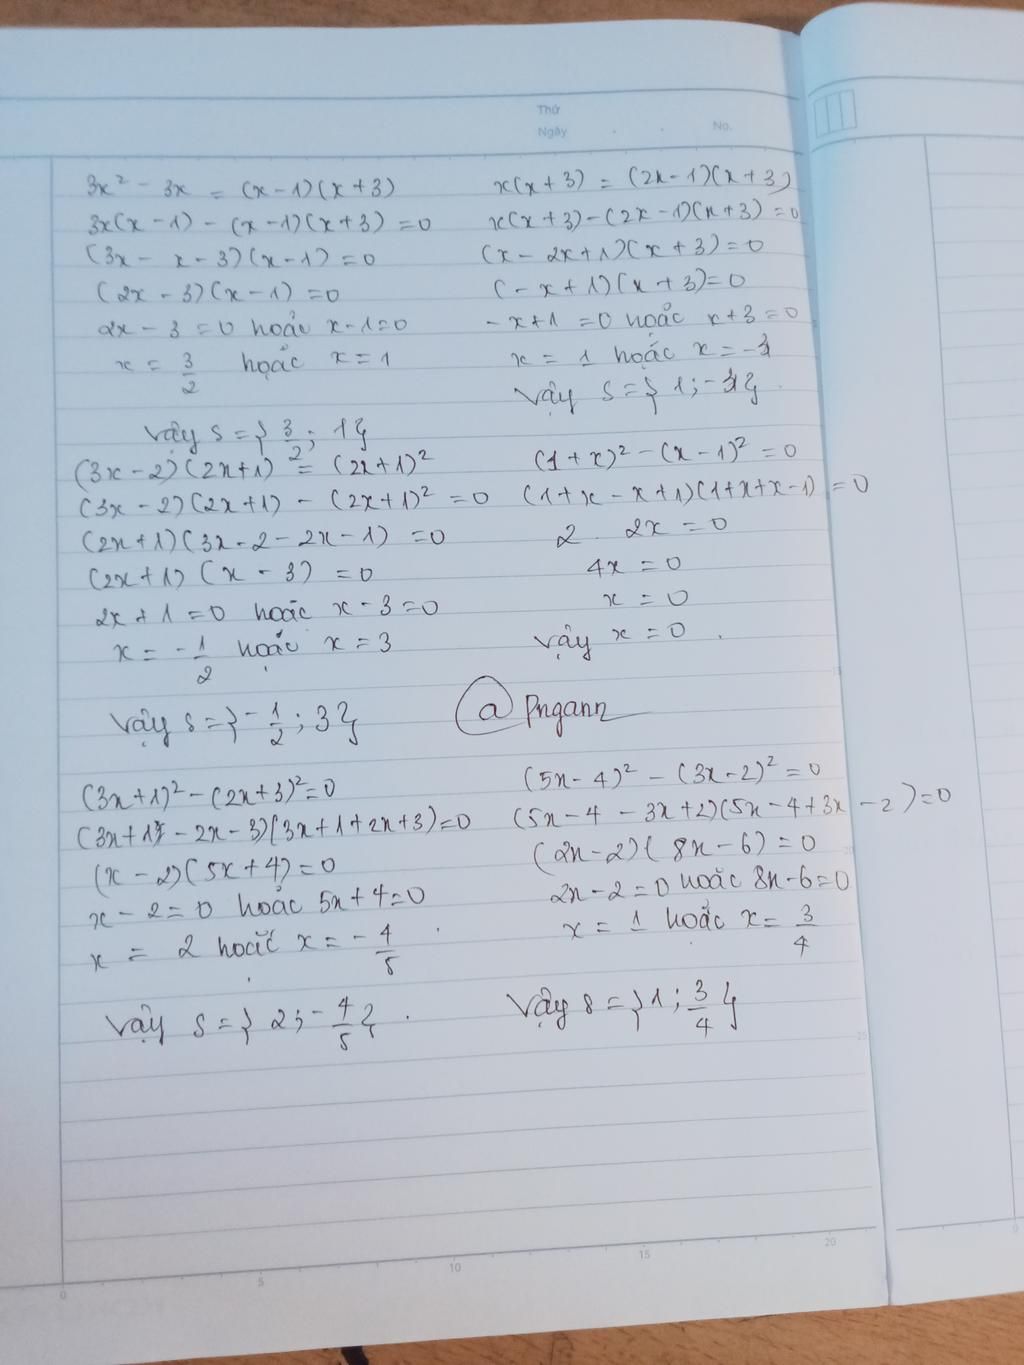 Thứ
Ngày
No.
3x² - 3x = (x-1)(x+3)
3x(x-1) - (x-1)(x+3) = 0
(3x - x - 3)(x-1) = 0
(2x - 3)(x-1) = 0
2x - 3 = 0 hoặc x-1=0
x = 3/2 hoặc x = 1
Vậy S = } 3/2 ; 1}
x(x+3) = (2x-1)(x+3)
x(x+3) - (2x-1)(x+3) = 0
(x - 2x+1)(x+3) = 0
(-x+1)(x+3) = 0
-x+1 = 0 hoặc x+3=0
x = 1 hoặc x = -3
Vậy S = } 1; -3}
(3x-2)(2x+1) = (2x+1)²
(3x-2)(2x+1) - (2x+1)² = 0
(2x+1)(3x-2-2x-1) = 0
(2x+1)(x-3) = 0
2x+1 = 0 hoặc x-3=0
x = -1/2 hoặc x = 3
Vậy S = } -1/2 ; 3}
(1+x)² - (x-1)² = 0
(1+x-x+1)(1+x+x-1) = 0
2. 2x = 0
4x = 0
x = 0
Vậy x = 0.
@ Pngann
(3x+1)² - (2x+3)² = 0
(3x+1 - 2x-3)(3x+1+2x+3) = 0
(x-2)(5x+4) = 0
x-2=0 hoặc 5x+4=0
x = 2 hoặc x = -4/5
Vậy S = } 2; -4/5 }.
(5x-4)² - (3x-2)² = 0
(5x-4-3x+2)(5x-4+3x-2) = 0
(2x-2)(8x-6) = 0
2x-2=0 hoặc 8x-6=0
x = 1 hoặc x = 3/4
Vậy S = } 1; 3/4 }
0 5 10 15 20
25